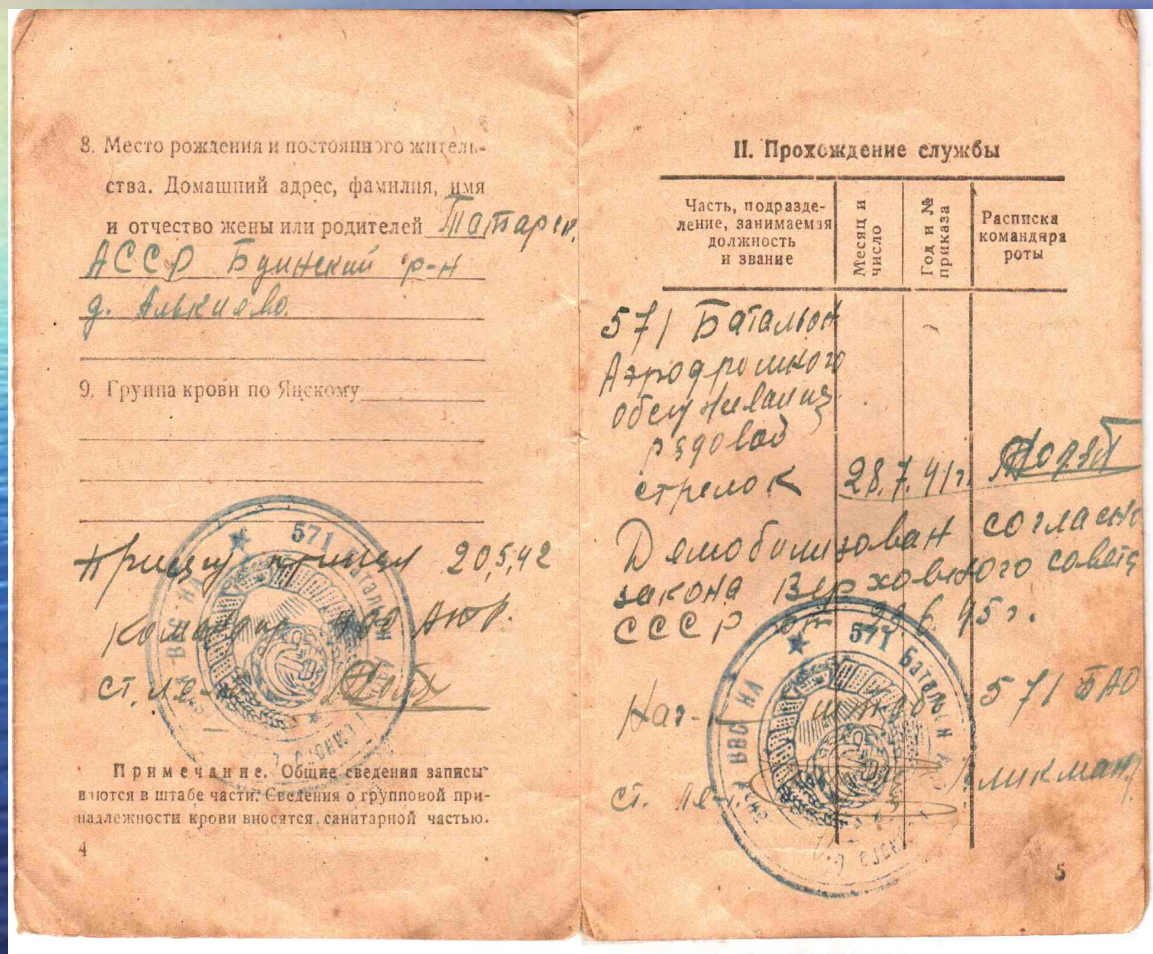 8. Место рождения и постоянного житель-
ства. Домашний адрес, фамилия, имя
и отчество жены или родителей Татарск.
АССР Буинский р-н
д. Алькиево.
9. Группа крови по Янскому
571
Присягу принял 20,5,42
Командир
ст. ле-т
Примечание. Общие сведения записы-
ваются в штабе части. Сведения о групповой при-
надлежности крови вносятся санитарной частью.
4
II. Прохождение службы
Часть, подразде-
ление, занимаемая
должность
и звание
Месяц и
число
Год и №
приказа
Расписка
командира
роты
571 Батальон
Аэродромного
обслуживания
рядовой
стрелок 28.7.41г.
Демобилизован согласно
закона Верховного совета
СССР от
571 Батальон
ВВС НА
Нач- штаба 571 БАО
ст. ле-т
5